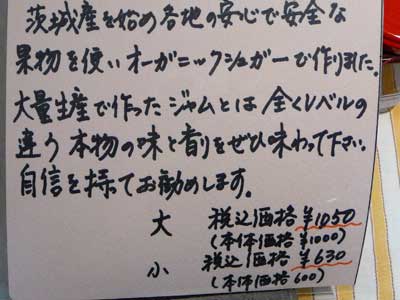 茨城産を始め各地の安心で安全な
果物を使いオーガニックシュガーで作りました。
大量生産で作ったジャムとは全くレベルの
違う本物の味と香りをぜひ味わって下さい。
自信を持ってお勧めします。
大 税込価格 ¥1050
(本体価格 ¥1000)
小 税込価格 ¥630
(本体価格 600)